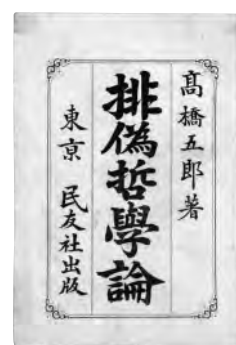 高橋五郎著
排偽哲學論
東京 民友社出版